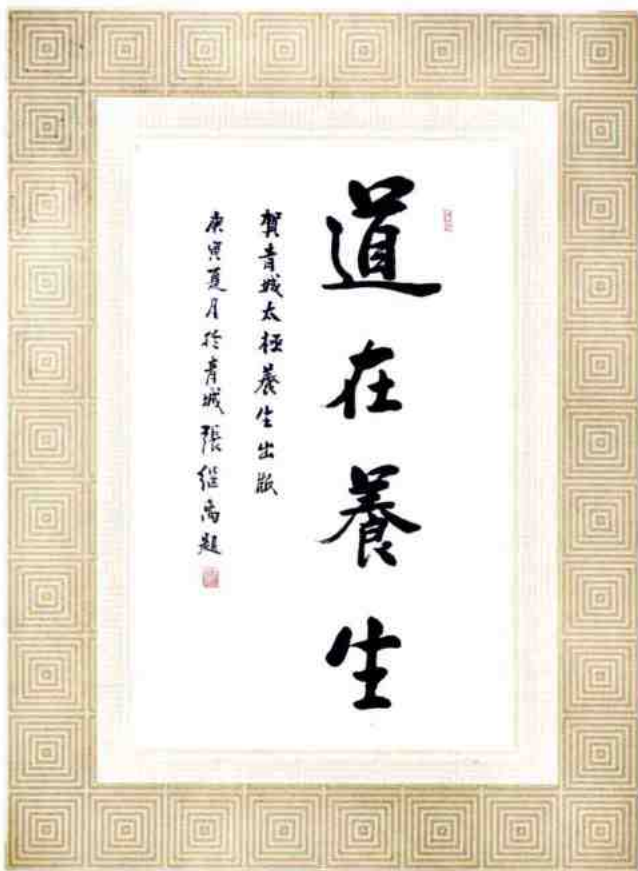 道在養生
賀青城太極養生出版
庚寅夏月於青城張繼禹題